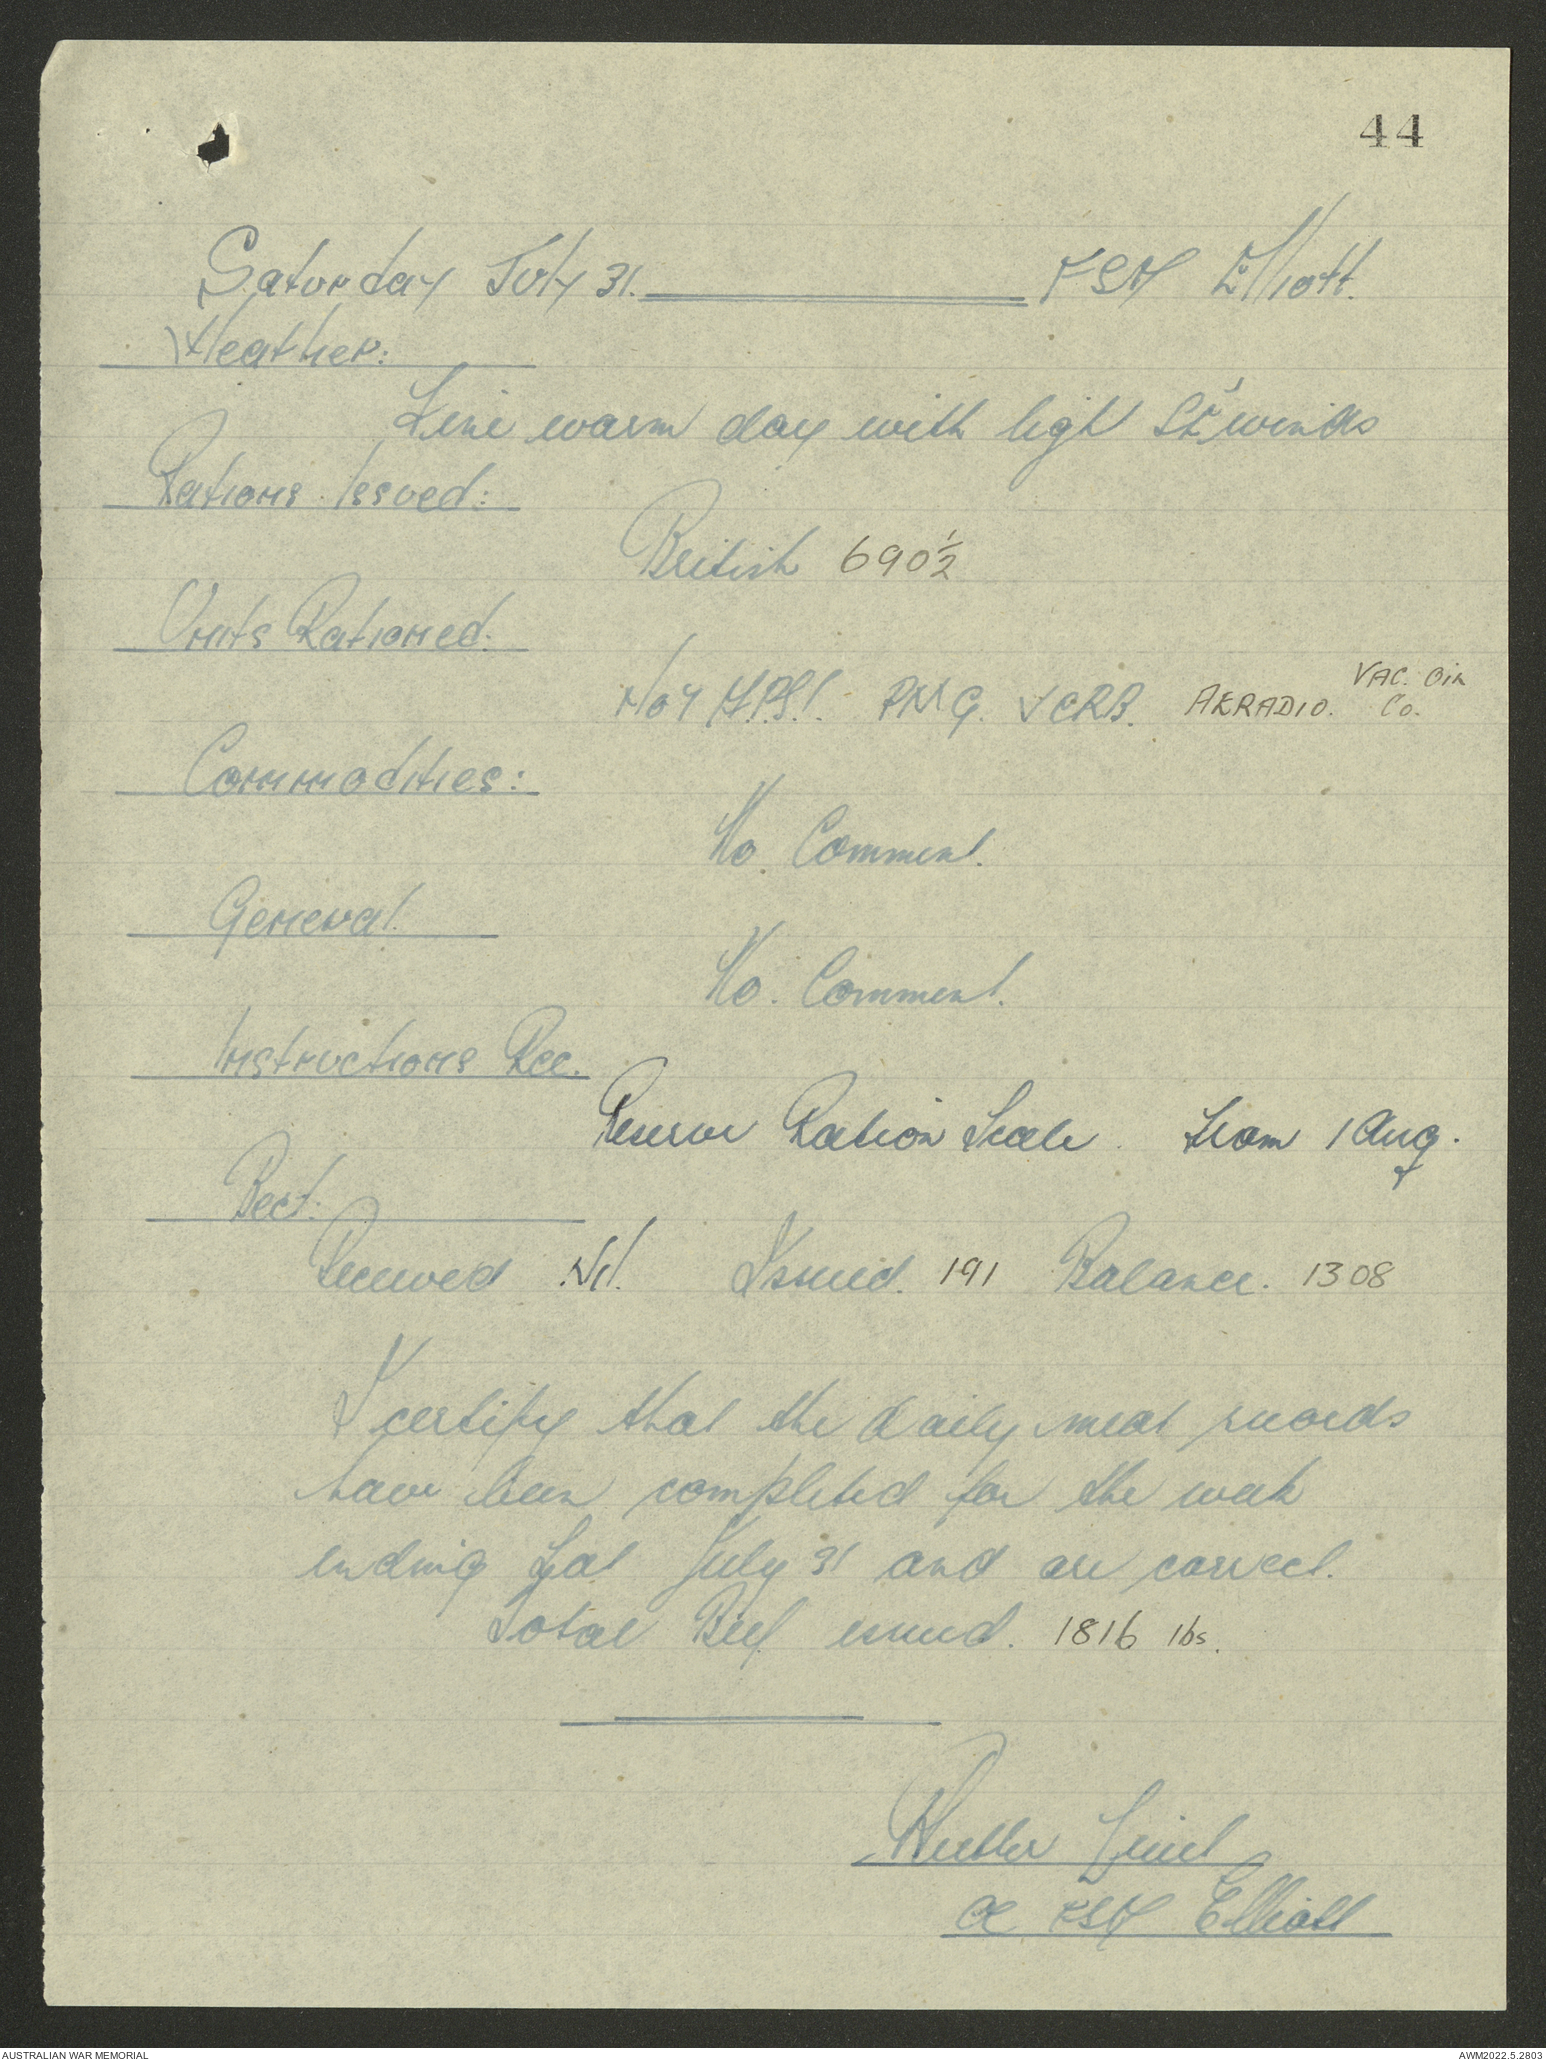 44
Saturday July 31. FSD Elliott.
Weather:
Fine warm day with light SE winds
Rations Issued:
British 690½
Units Rationed:
No 4 PMG. VCRB. AERADIO. VAC. OIL Co.
Commodities:
No. Comment.
General.
No. Comment.
Instructions Rec.
Reserve Ration Scale. from 1 Aug.
Beef:
Received Nil. Issued. 191 Balance. 1308
I certify that the daily meat records
have been completed for the week
ending Sat July 31 and are correct.
Total Beef issued. 1816 lbs.
Lieut
OC FSD Elliott
AUSTRALIAN WAR MEMORIAL
AWM2022.5.2803